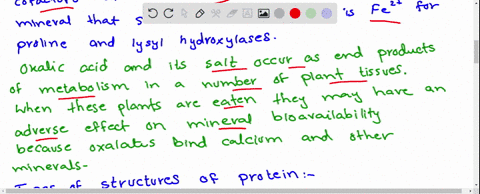 cofactors
mineral that s is Fe²⁺ for
proline and lysyl hydroxylases.
Oxalic acid and its salt occur as end products
of metabolism in a number of plant tissues.
When these plants are eaten they may have an
adverse effect on mineral bioavailability
because oxalates bind calcium and other
minerals-
of structures of protein:-